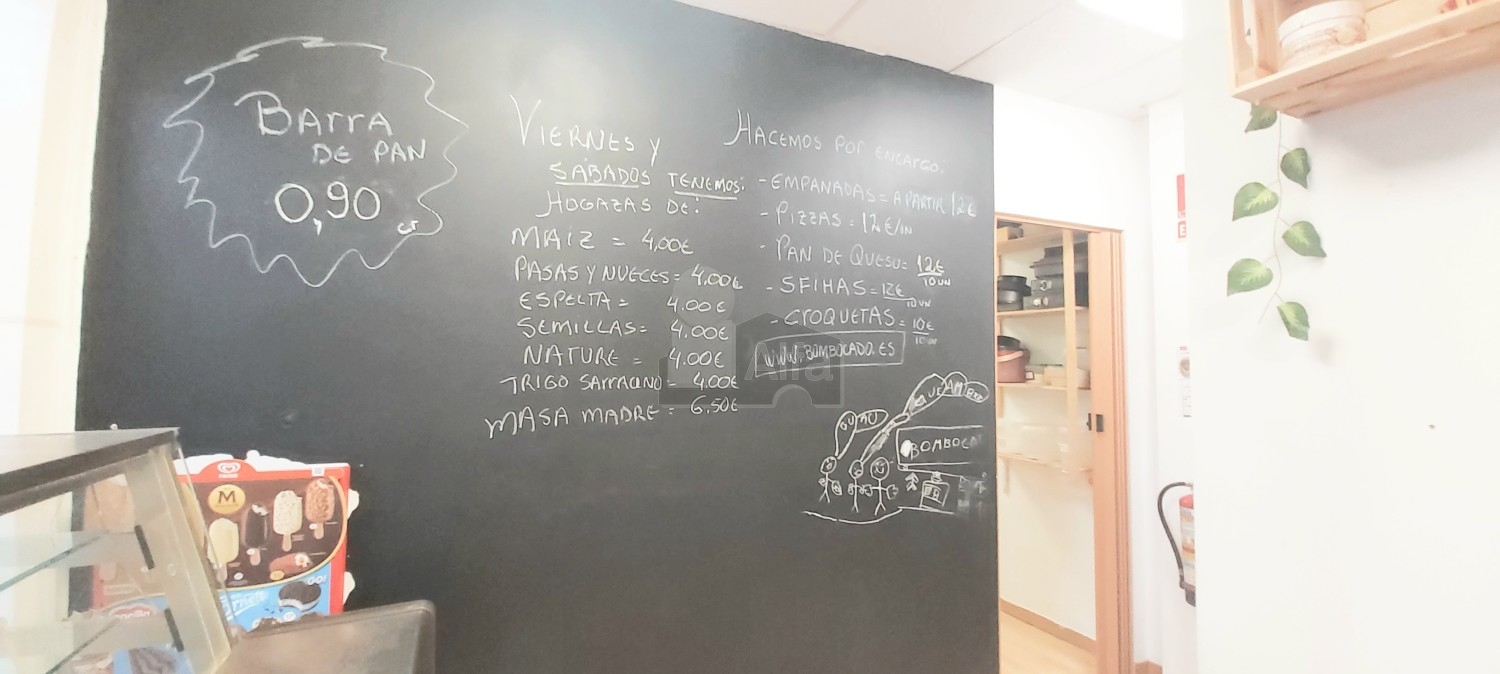 BArrA
DE PAN
0,90
CT
VIERNES Y
SÁBADOS TENEMOS:
HOGAZAS DE:
MAIZ = 4,00€
PASAS Y NUECES = 4.00€
ESPELTA = 4.00€
SEMILLAS = 4.00€
NATURE = 4.00€
TRIGO SARRACENO - 4.00€
MASA MADRE = 6,50€
HACEMOS POR ENCARGO:
- EMPANADAS = A PARTIR 12€
- PIZZAS = 12€/UN
- PAN DE QUESO = 12€/10UN
- SFIHAS = 12€/10UN
- CROQUETAS = 10€/10UN
WWW.BOMBOCADO.ES
BOMBOCA
M
GO!